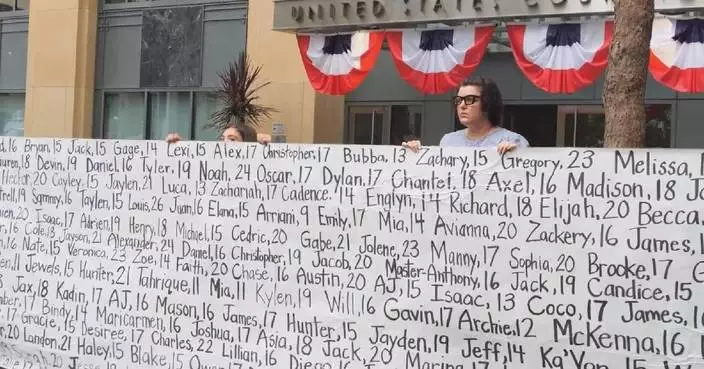 UNITED STATES COU
16 Bryan, 15 Jack, 15 Gage, 14 Lexi, 15 Alex, 17 Christopher, 17 Bubba, 13 Zachary, 15 Gregory, 23 Melissa,
18 Devin, 19 Daniel, 16 Tyler, 19 Noah, 24 Oscar, 17 Dylan, 17 Chantel, 18 Axel, 16 Madison, 18
Hector, 20 Cayley, 15 Jaylen, 21 Luca, 13 Zachariah, 17 Cadence, 14 Englyn, 14 Richard, 18 Elijah, 20 Becca
19 Sammy, 16 Taylen, 15 Louis, 26 Juan, 16 Elana, 15 Arriani, 9 Emily, 17 Mia, 14 Avianna, 20 Zackery, 16 James,
20 Isaac, 17 Adrien, 19 Henry, 18 Michael, 15 Cedric, 20 Gabe, 21 Jolene, 23 Manny, 17 Sophia, 20 Brooke, 17
16 Cole, 13 Jayson, 21 Alexander, 24 Daniel, 16 Christopher, 19 Jacob, 20 Master-Anthony, 16 Jack, 19 Candice, 15
16 Nate, 15 Veronica, 23 Zoe, 14 Faith, 20 Chase, 16 Austin, 20 AJ, 15 Isaac, 13 Coco, 17 James,
11 Jewels, 15 Hunter, 21 Tahrique, 11 Mia, 11 Kylen, 19 Will, 16 Gavin, 17 Archie, 12 McKenna, 16
Jax, 18 Kadin, 17 AJ, 16 Mason, 16 James, 17 Hunter, 15 Jayden, 19 Jeff, 14 Ka'Von, 15
17 Bindy, 14 Maricarmen, 16 Joshua, 17 Asia, 18 Jack, 20
17 Gracie, 15 Desiree, 17 Charles, 22 Lillian, 16 Diego
20 Landon, 21 Haley, 15 Blake, 15 Owen